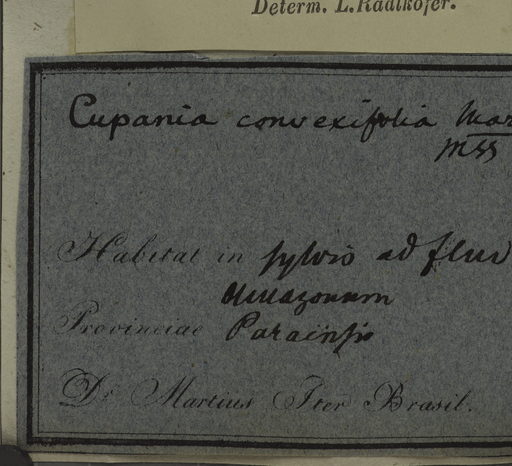 Determ. L. Radlkofer.
Cupania convexifolia Mar
Mss
Habitat in sylvis ad fluv
Amazonum
Provinciae Paraensis
Dr. Martius Iter Brasil.